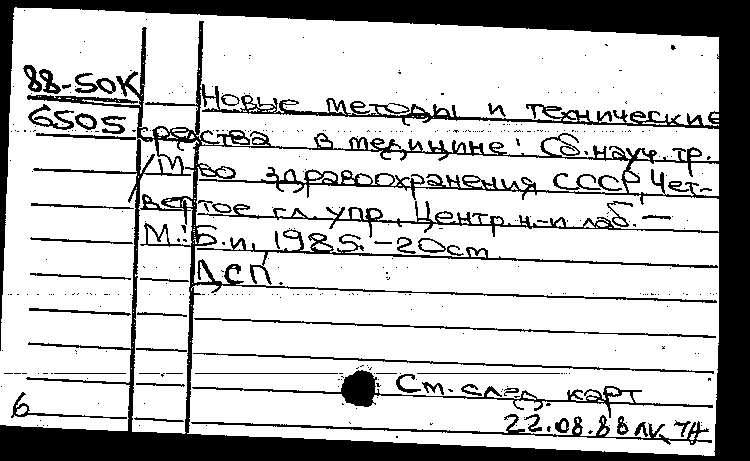 88-50К
6505
Новые методы и технические
средства в медицине: Сб. науч. тр.
/М-во здравоохранения СССР, Чет-
вертое гл. упр., Центр. н.-и лаб. —
М.: Б.и., 1985. - 20 см
ДСП.
См. след. карт
6
22.08.88